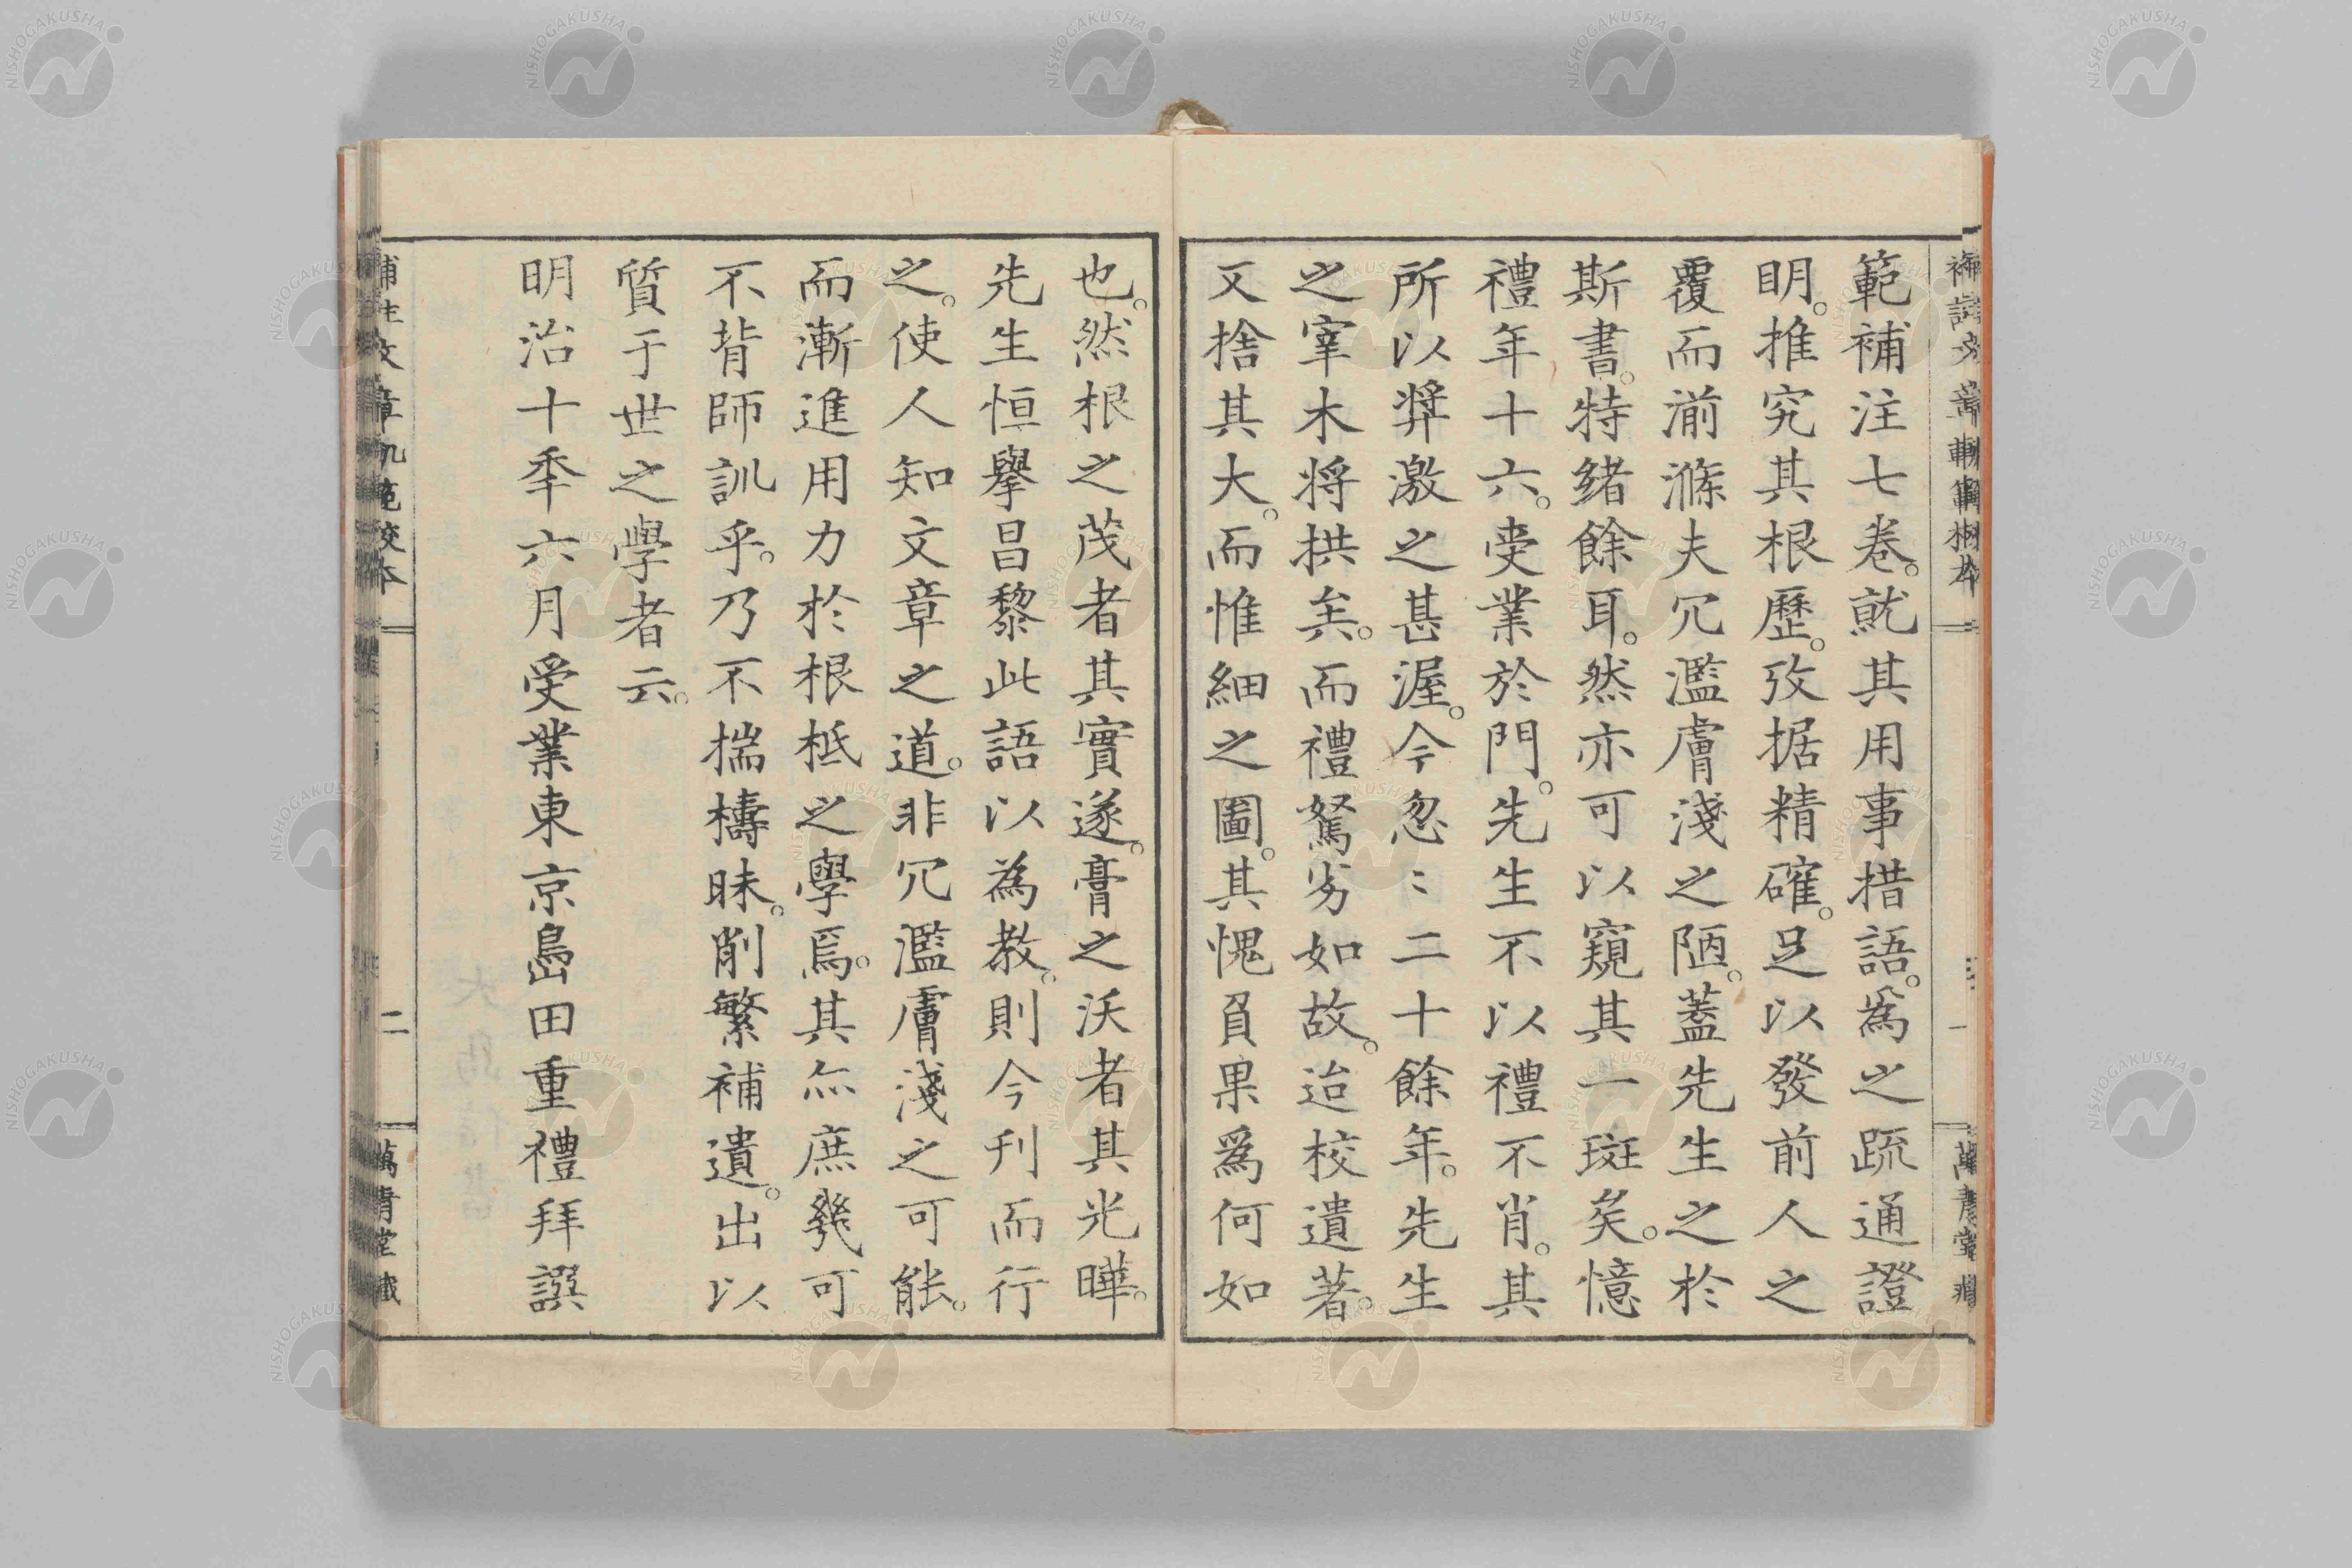 範補注七卷。就其用事措語。爲之疏通證
明。推究其根歷。攷据精確。足以發前人之
覆而湔滌夫冗濫膚淺之陋。蓋先生之於
斯書。特緒餘耳。然亦可以窺其一斑矣。憶
禮年十六。受業於門。先生不以禮不肖。其
所以奬激之甚渥。今忽〻二十餘年。先生
之宰木將拱矣。而禮駑劣如故。迨校遺著。
又捨其大。而惟細之圖。其愧負果爲何如
也。然根之茂者其實遂。膏之沃者其光曄。
先生恒擧昌黎此語以為教。則今刊而行
之。使人知文章之道。非冗濫膚淺之可能。
而漸進用力於根柢之學焉。其尒庶幾可
不背師訓乎。乃不揣檮昧。削繁補遺。出以
質于世之學者云。
明治十秊六月受業東京島田重禮拜譔
補注文章軌範校本
二
萬青堂藏
NISHOGAKUSHA